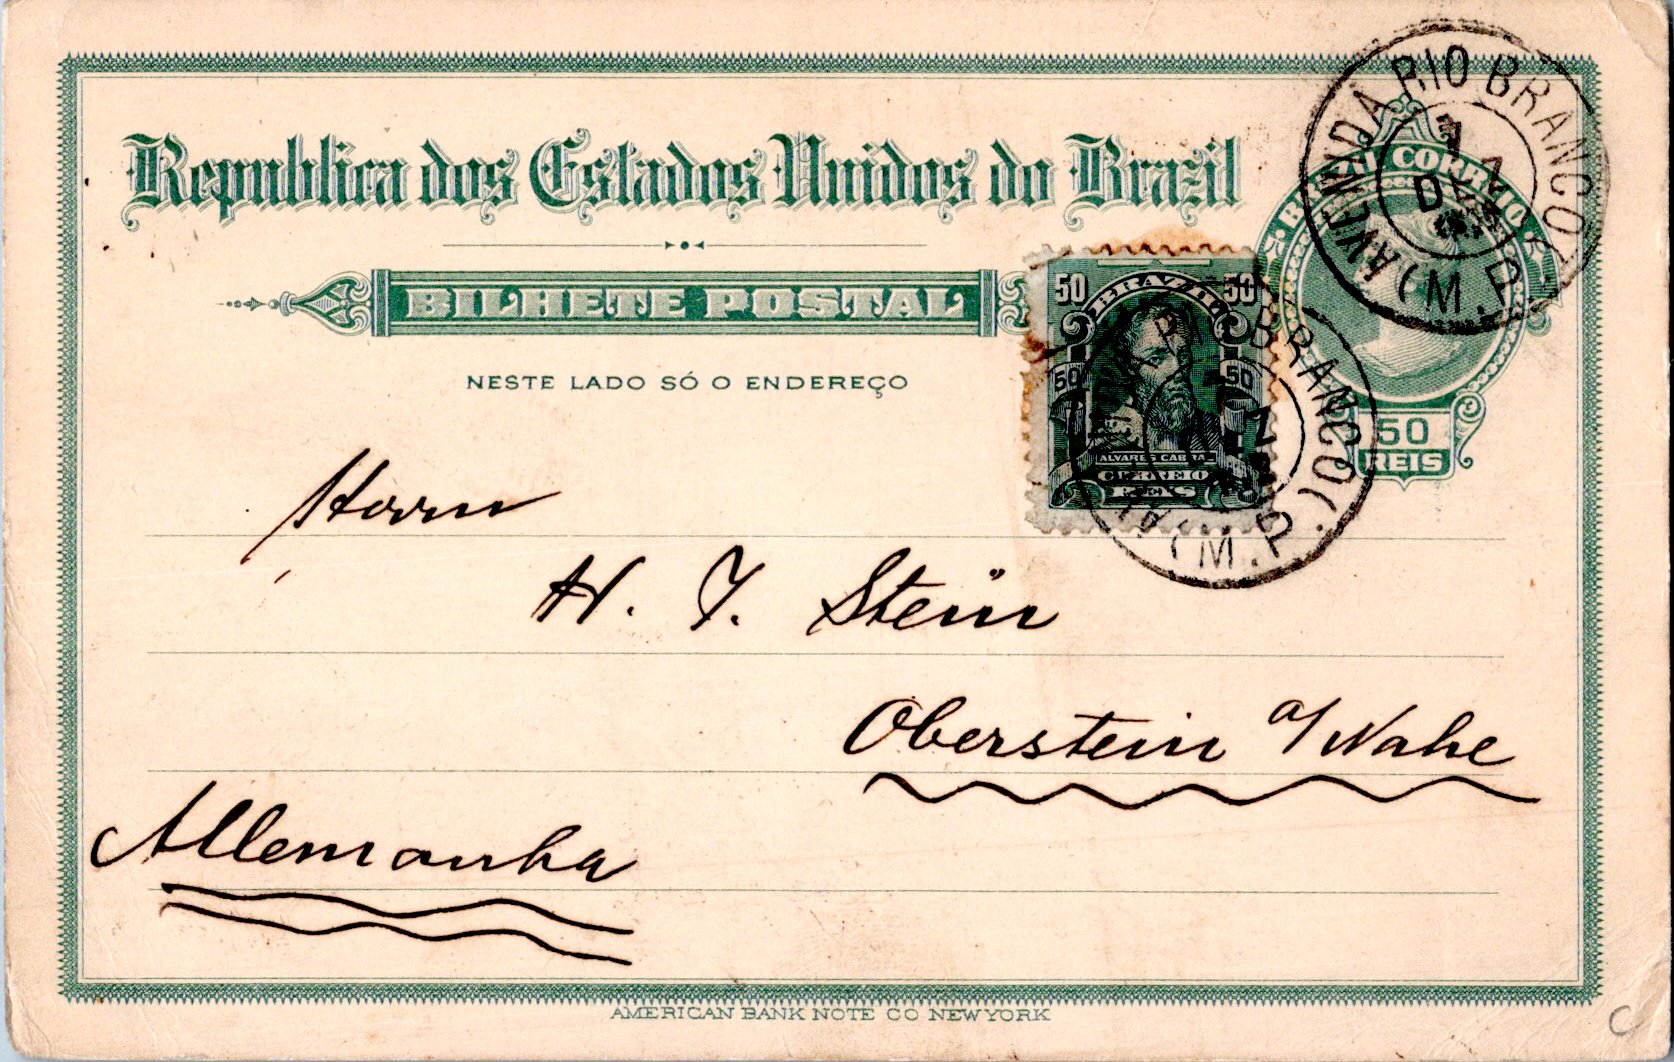 Republica dos Estados Unidos do Brazil
BILHETE POSTAL
NESTE LADO SÓ O ENDEREÇO
AVENIDA RIO BRANCO (M.P.)
CORREIO
50
REIS
50 50
50 50
ALVARES CABRAL
CORREIO
REIS
BRANCO (M.P.)
Herrn
H. J. Stein
Oberstein a/Nahe
Allemanha
AMERICAN BANK NOTE CO NEW YORK
C